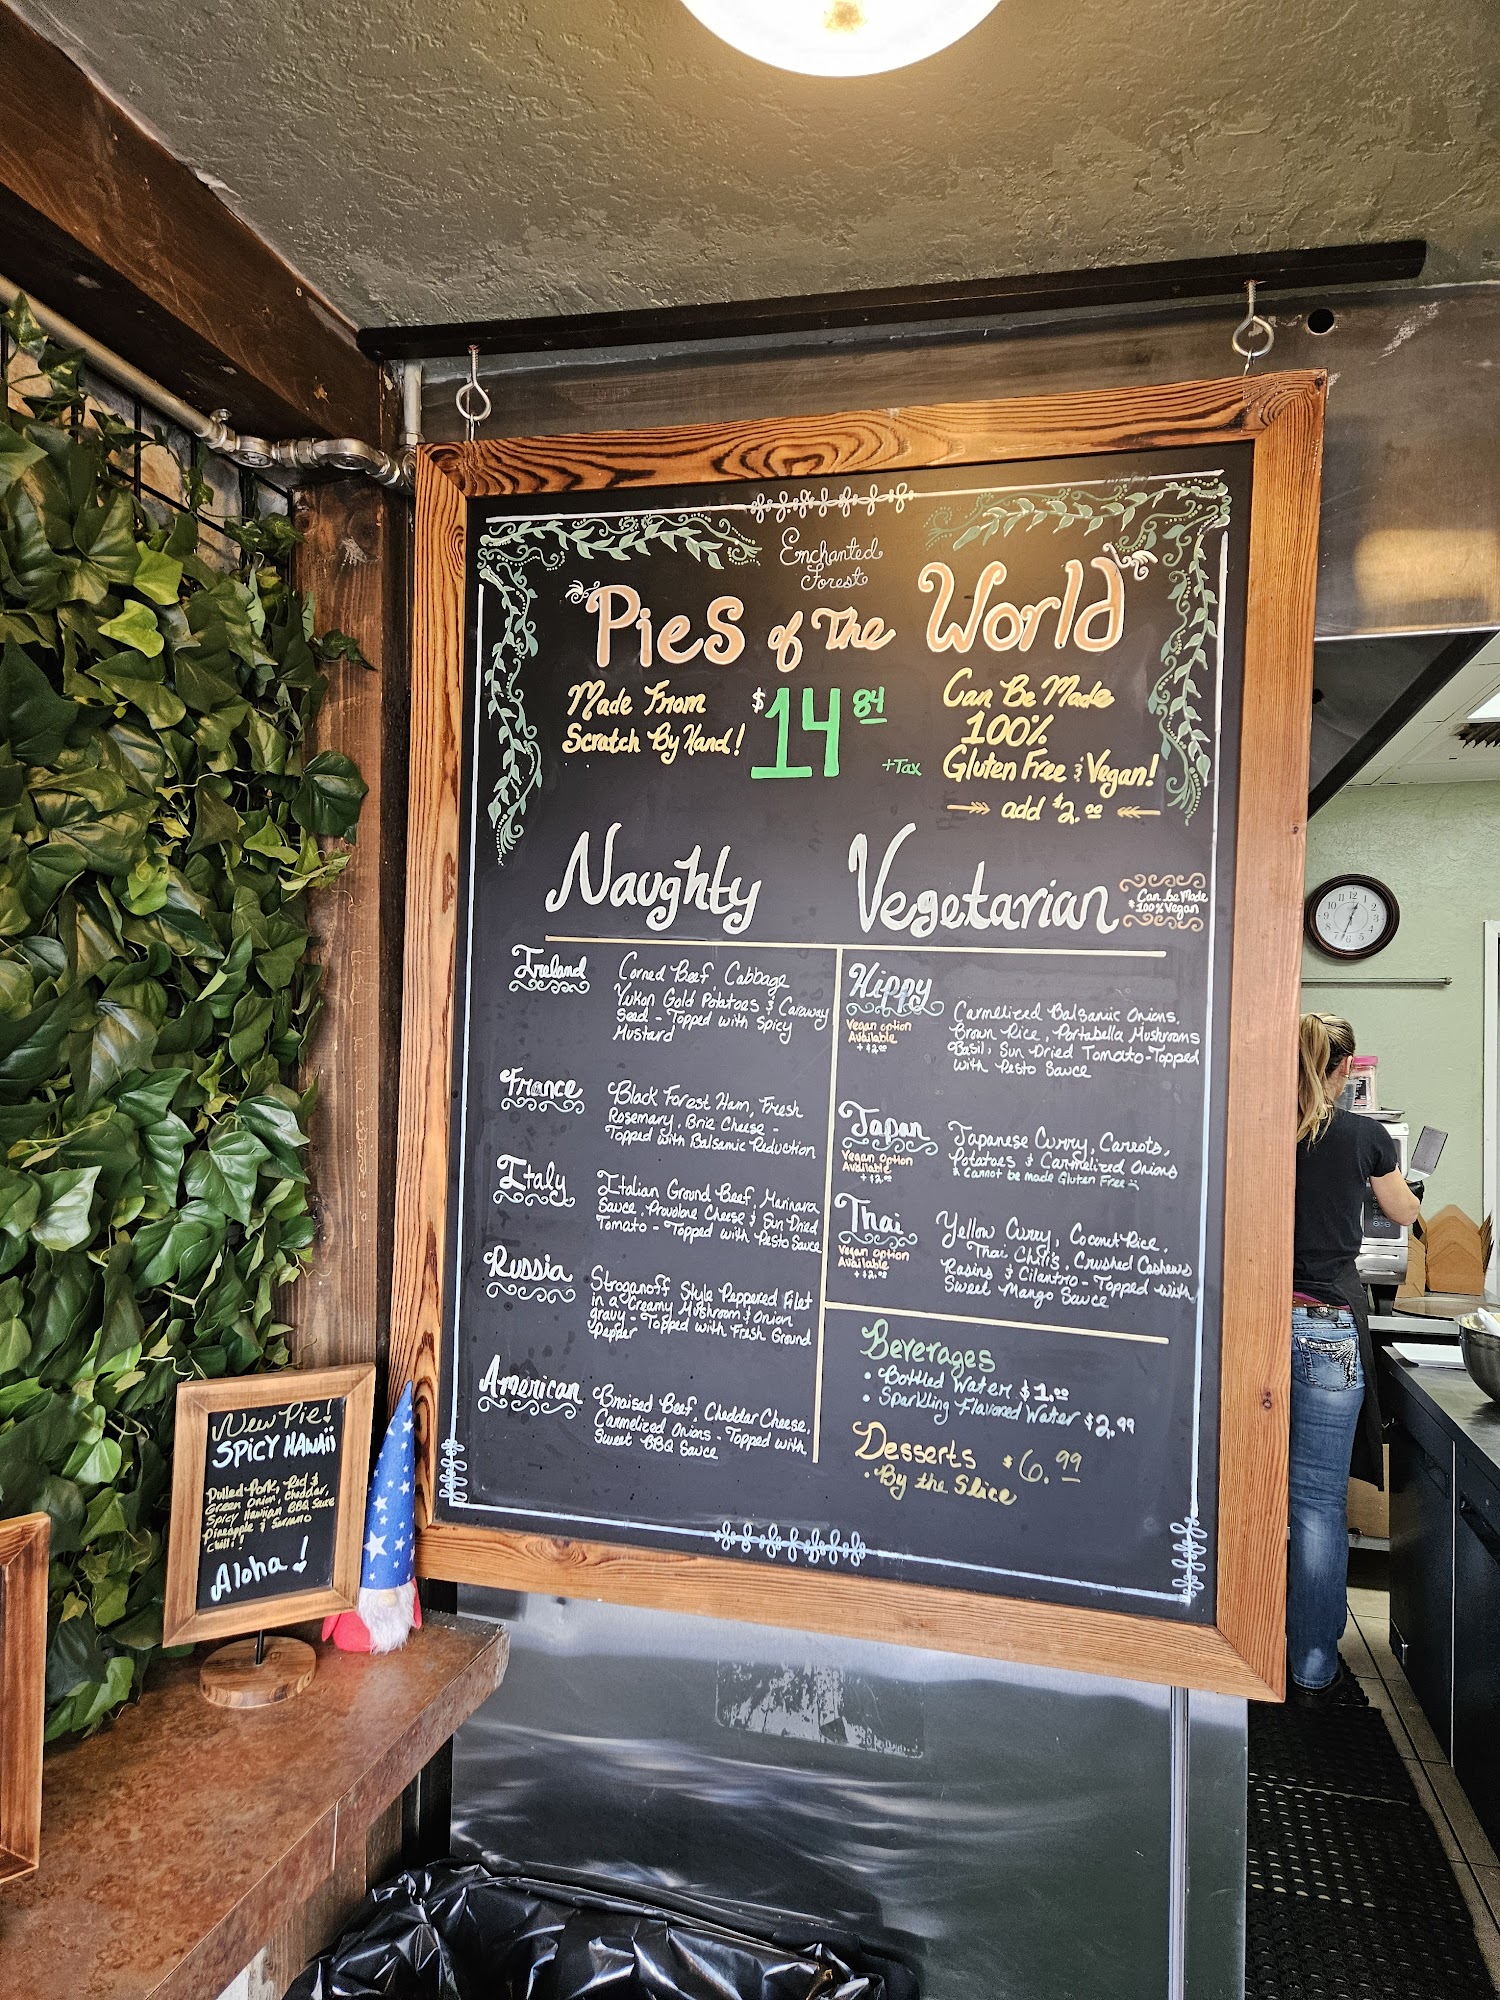 Enchanted
Forest
"Pies of The World"
Made From
Scratch By Hand!
$14 84
+Tax
Can Be Made
100%
Gluten Free & Vegan!
add $2.00
Naughty
Ireland
Corned Beef Cabbage
Yukon Gold Potatoes & Caraway
Seed - Topped with Spicy
Mustard
France
Black Forest Ham, Fresh
Rosemary, Brie Cheese -
Topped with Balsamic Reduction
Italy
Italian Ground Beef, Marinara
Sauce, Provolone Cheese & Sun Dried
Tomato - Topped with Pesto Sauce
Russia
Stroganoff Style Peppered Filet
in a Creamy Mushroom & Onion
gravy - Topped with Fresh Ground
Pepper
American
Braised Beef, Cheddar Cheese,
Carmelized Onions - Topped with
Sweet BBQ Sauce
Vegetarian
Can be Made
100% Vegan
Hippy
Vegan option
Available
+ $2.00
Carmelized Balsamic Onions,
Brown Rice, Portabella Mushrooms
Basil, Sun Dried Tomato - Topped
with Pesto Sauce
Japan
Vegan Option
Available
+ $2.00
Japanese Curry, Carrots,
Potatoes & Carmelized Onions
Cannot be made Gluten Free
Thai
Vegan option
Available
+ $2.00
Yellow Curry, Coconut Rice,
Thai Chili's, Crushed Cashews
Rasins & Cilantro - Topped with
Sweet Mango Sauce
Beverages
• Bottled Water $1.00
• Sparkling Flavored Water $2.99
Desserts $6.99
• By the Slice
New Pie!
SPICY HAWAII
Pulled Pork, Red &
Green Onion, Cheddar,
Spicy Hawiian BBQ Sauce
Pineapple & Serrano
Chili!
Aloha!